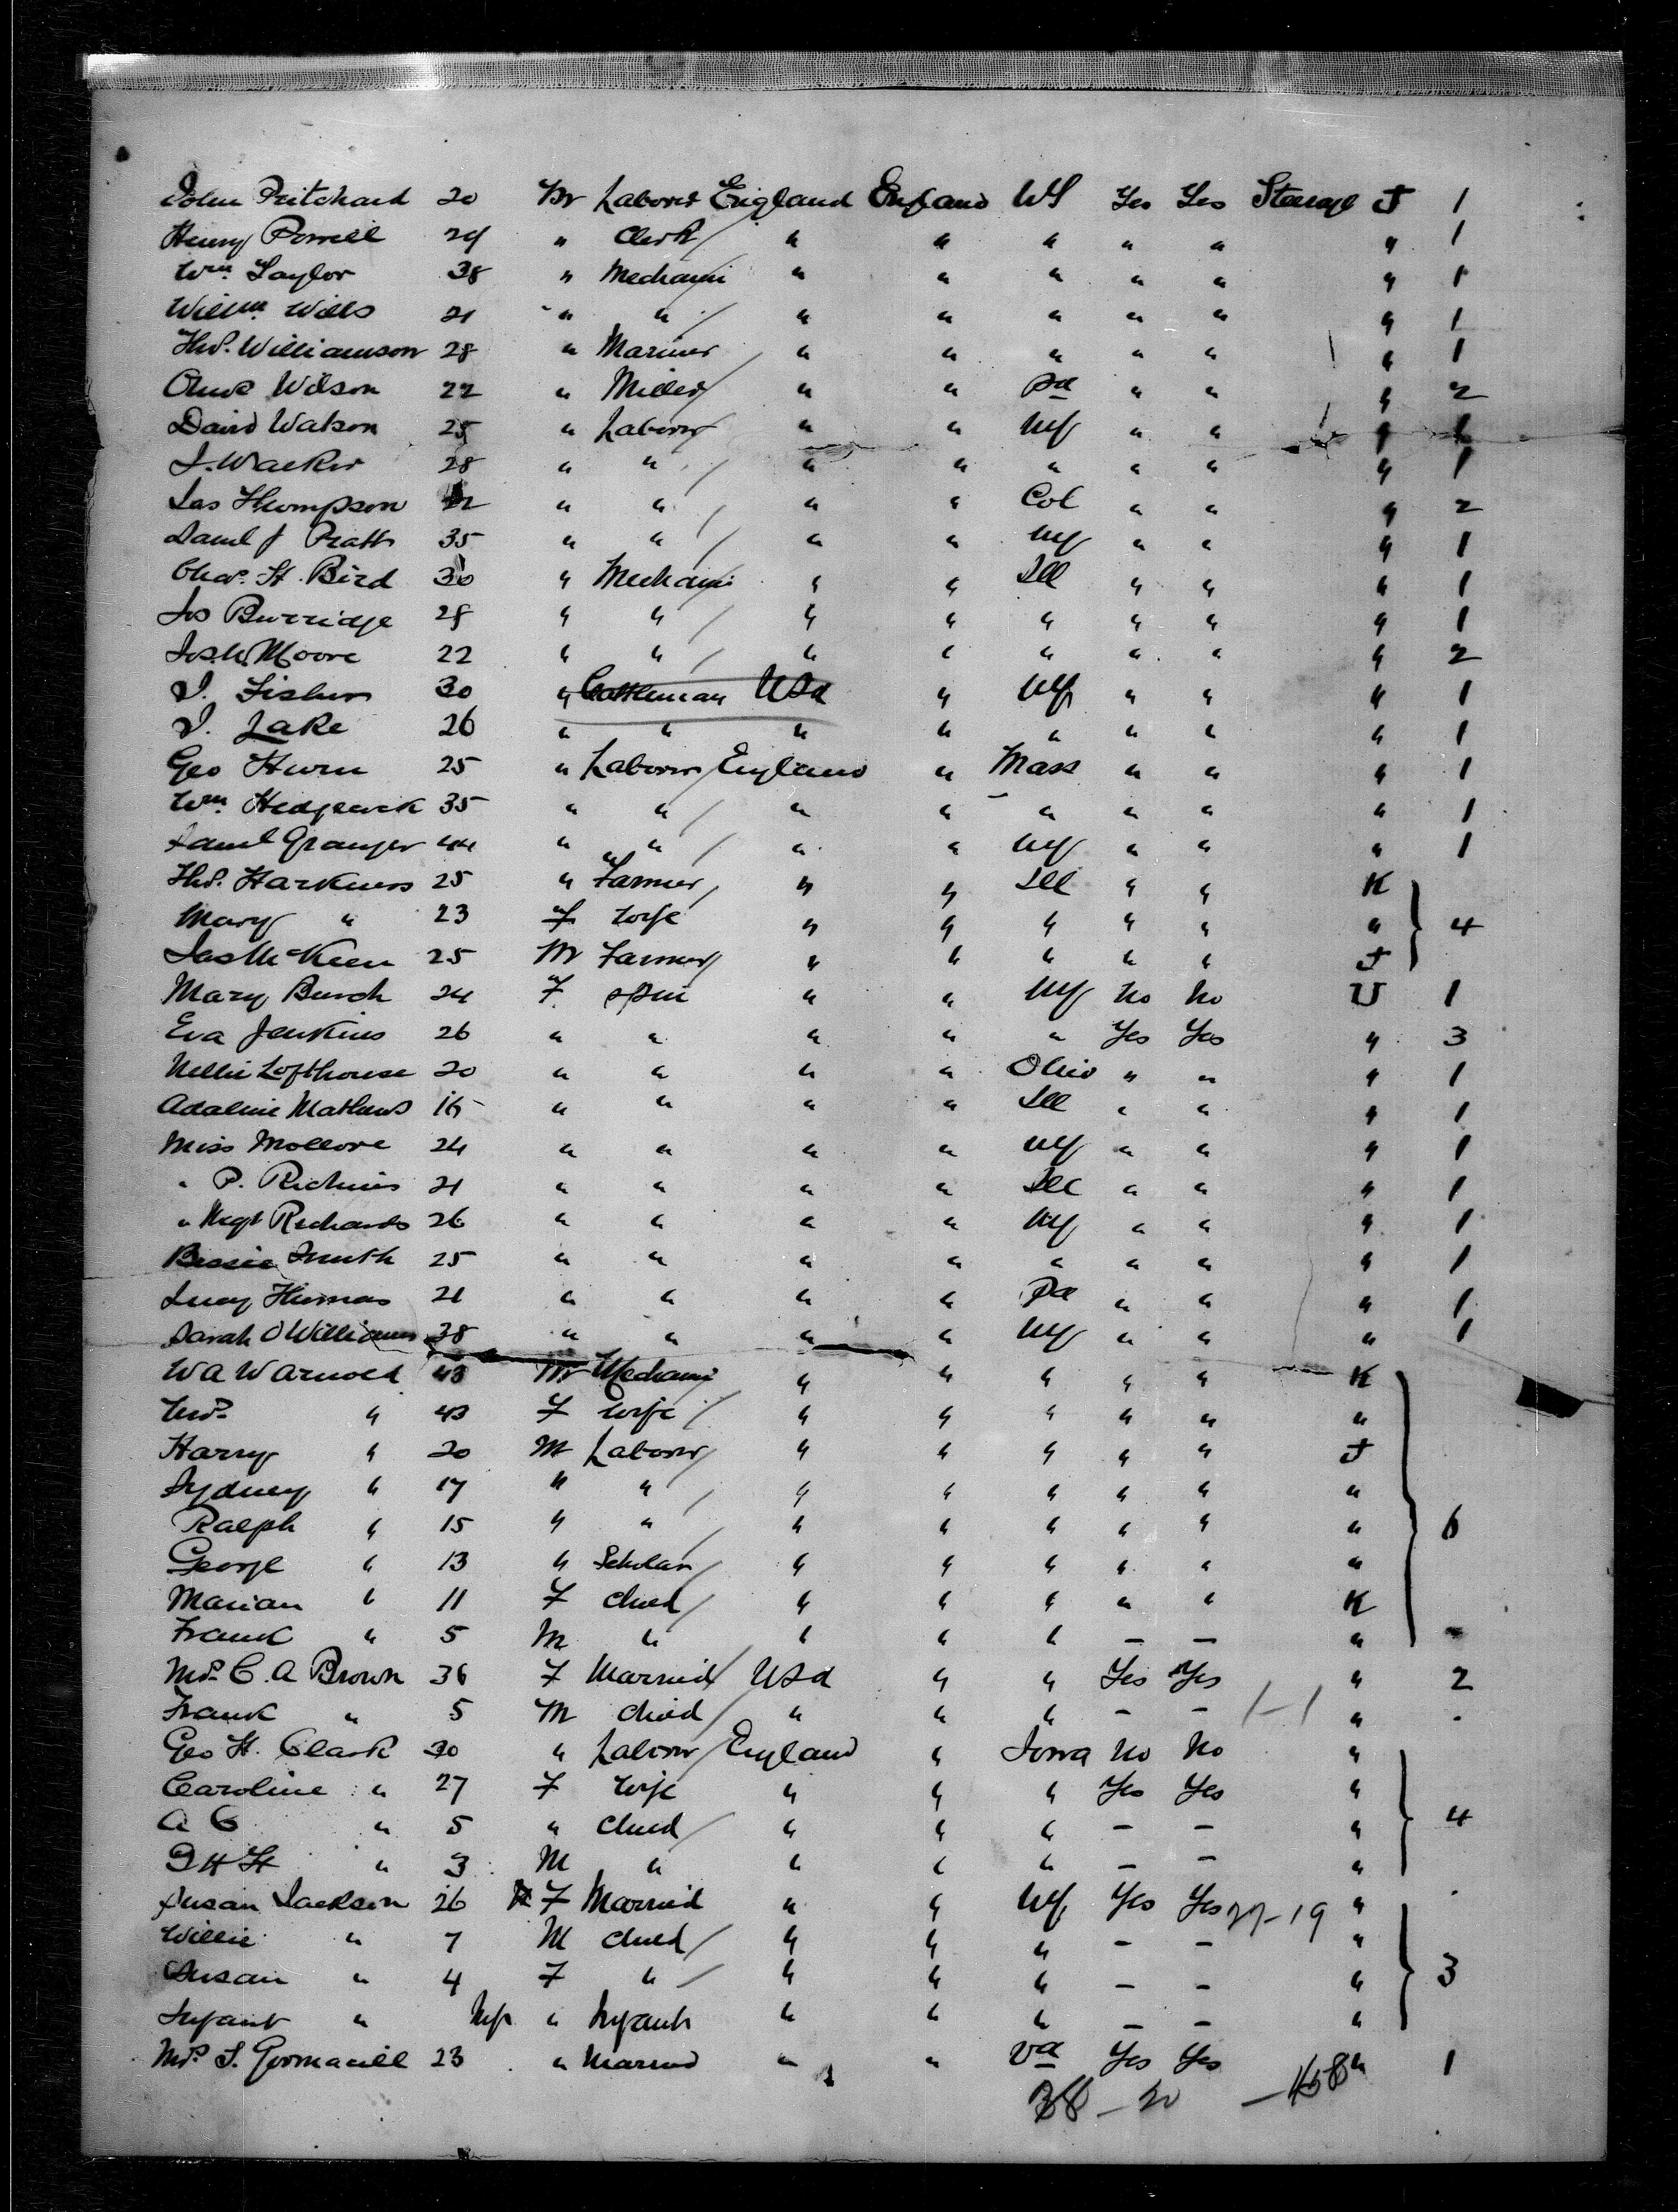 John Pritchard 20 M Laborer England England NY Yes Yes Steerage J 1
Henry Powell 24 " Clerk " " " " " " 1
Wm. Taylor 38 " Mechanic " " " " " " 1
Willm. Wills 21 " " " " " " " " 1
Thos. Williamson 28 " Mariner " " " " " " 1
Wilson 22 " Miller " " Pa " " " 2
David Watson 25 " Laborer " " NY " " " 1
J. Walker 28 " " " " " " " " 1
Jas Thompson " " " " Col " " " 2
Saml J Pratt 35 " " " " NY " " " 1
Chas. H. Bird 30 " Mechanic " " Ill " " " 1
Jos Burridge 28 " " " " " " " " 1
Jos. W. Moore 22 " " " " " " " " 2
J. Fisher 30 " Cattleman USA " NY " " " 1
J. Lake 26 " " " " " " " " 1
Geo Hurn 25 " Laborer England " Mass " " " 1
Wm. 35 " " " " " " " " 1
Saml Granger 44 " " " " NY " " " 1
Thos. Harkness 25 " Farmer " " Ill " " K
Mary " 23 F Wife " " " " " " 4
Jas McKeen 25 M Farmer " " " " " J
Mary Burch 24 F Spin " " NY No No U 1
Eva Jenkins 26 " " " " " Yes Yes " 3
Nellie Lofthouse 20 " " " " Ohio " " " 1
Adaline Mathews 16 " " " " Ill " " " 1
Miss 24 " " " " NY " " " 1
" P. 21 " " " " Ill " " " 1
" Mgt Richards 26 " " " " NY " " " 1
Bessie Smith 25 " " " " " " " " 1
Lucy Thomas 21 " " " " Pa " " " 1
Sarah O Williams 38 " " " " NY " " " 1
W A Warnold 43 M Mechanic " " " " " K
Mrs. " 43 F Wife " " " " " "
Harry " 20 M Laborer " " " " " J
Sydney " 17 " " " " " " " "
Ralph " 15 " " " " " " " " 6
George " 13 " Scholar " " " " " "
Marian " 11 F Child " " " " " K
Frank " 5 M " " " " — — "
Mrs. C. A Brown 36 F Married USA " " Yes Yes " 2
Frank " 5 M Child " " " — — 1-1 "
Geo H. Clark 30 " Laborer England " Iowa No No "
Caroline " 27 F Wife " " " Yes Yes "
A C " 5 " Child " " " — — " 4
H " 3 M " " " " — — "
Susan Jackson 26 F Married " " NY Yes Yes 27-19 "
Willie " 7 M Child " " " — — "
Susan " 4 F " " " " — — " 3
Infant " Inf " Infant " " " — — "
Mrs. S. 23 " Married " " Va Yes Yes " 1